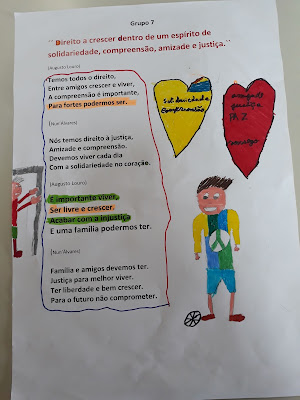 Grupo 7
`` Direito a crescer dentro de um espírito de
solidariedade, compreensão, amizade e justiça.``
(Augusto Louro)
Temos todos o direito,
Entre amigos crescer e viver,
A compreensão é importante,
Para fortes podermos ser.
(Nuri Álvares)
Nós temos direito à justiça,
Amizade e compreensão.
Devemos viver cada dia
Com a solidariedade no coração.
(Augusto Louro)
É importante viver,
Ser livre e crescer.
Acabar com a injustiça
E uma família podermos ter.
(Nuri Álvares)
Família e amigos devemos ter.
Justiça para melhor viver.
Ter liberdade e bem crescer.
Para o futuro não comprometer.
Solidariedade
compreensão
amizade
justiça
PAZ